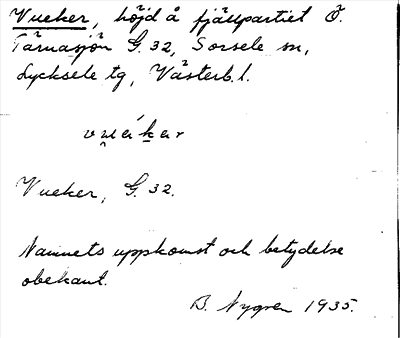 Vueker, höjd å fjällpartiet Ö.
Tärnasjön G. 32, Sorsele sn,
Lycksele tg, Västerb. l.
vu̯éḵer
Vueker, G. 32.
Namnets uppkomst och betydelse
obekant.
B. Nygren 1935.